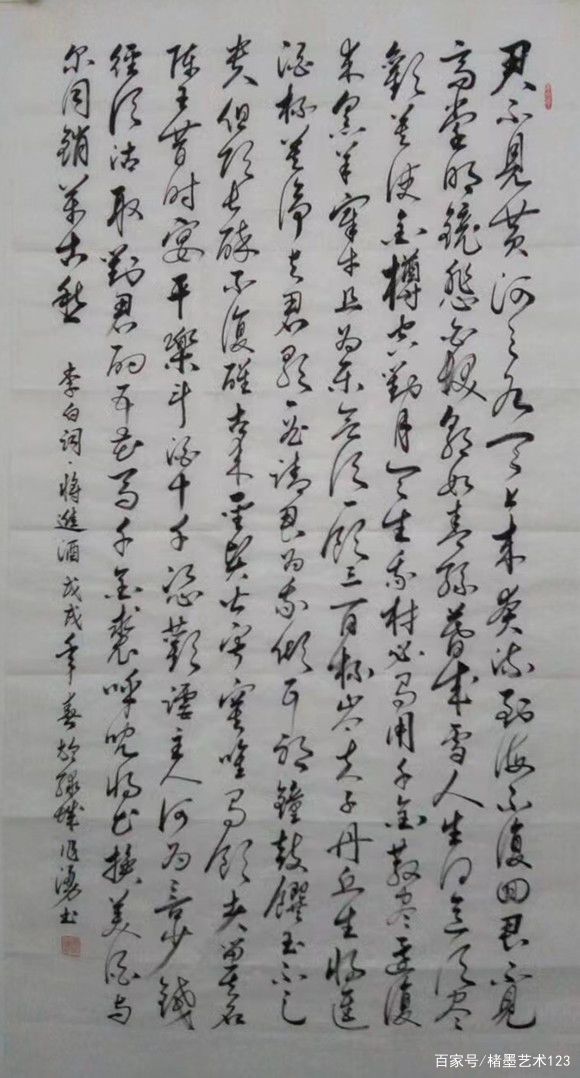 君不見黄河之水天上来奔流到海不復回君不見
高堂明鏡悲白髮朝如青絲暮成雪人生得意须尽
歡莫使金樽空對月天生我材必有用千金散尽還復
来烹羊宰牛且为乐會须一飲三百杯岑夫子丹丘生将進
酒杯莫停与君歌一曲请君为我傾耳聽鐘鼓饌玉不足
贵但願長醉不復醒古来聖賢皆寂寞唯有飲者留其名
陈王昔时宴平樂斗酒十千恣歡谑主人何为言少錢
徑须沽取對君酌五花馬千金裘呼兒将出换美酒与
尔同銷萬古愁 李白词·将進酒 戊戌年春於绿城 書
百家号/楮墨艺术123